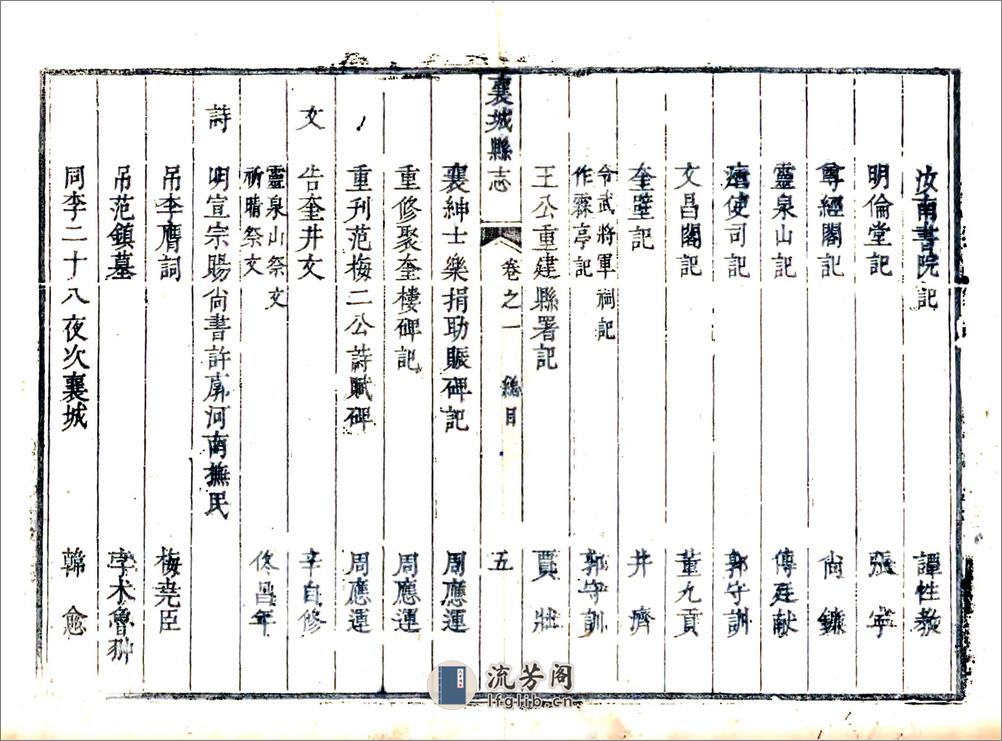 汝南書院記 譚性教
明倫堂記 張寧
尊經閣記 尚鏞
靈泉山記 傅廷献
瘞使司記 郭守訓
文昌閣記 董九貢
奎壁記 井濟
令武將軍祠記
作霖亭記 郭守訓
王公重建縣署記 賈壯
襄城縣志 卷之一 總目 五
襄紳士樂捐助賑碑記 周應運
重修聚奎樓碑記 周應運
重刊范梅二公詩賦碑 周應運
文
告奎井文 辛自修
靈泉山祭文
祈晴祭文 佟昌年
詩
明宣宗賜尚書許廓河南撫民
吊李膺詞 梅堯臣
吊范鎮墓 孛术魯翀
同李二十八夜次襄城 韓愈
流芳阁
lfglib.cn